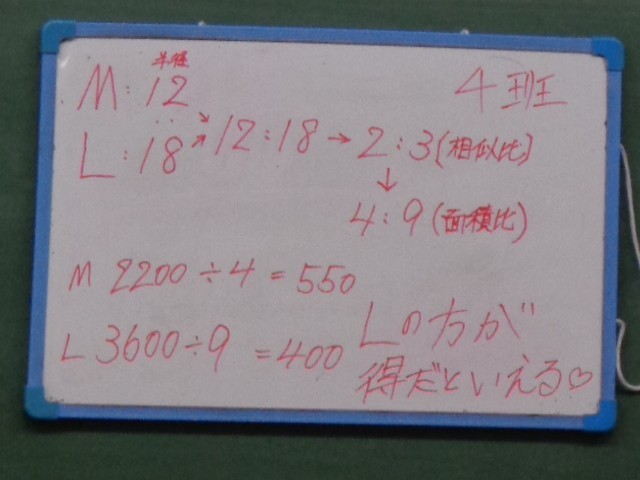 4班
半径
M:12
L:18 12:18→2:3(相似比)
↓
4:9(面積比)
M 2200÷4=550
L 3600÷9=400
Lの方が
得だといえる♡